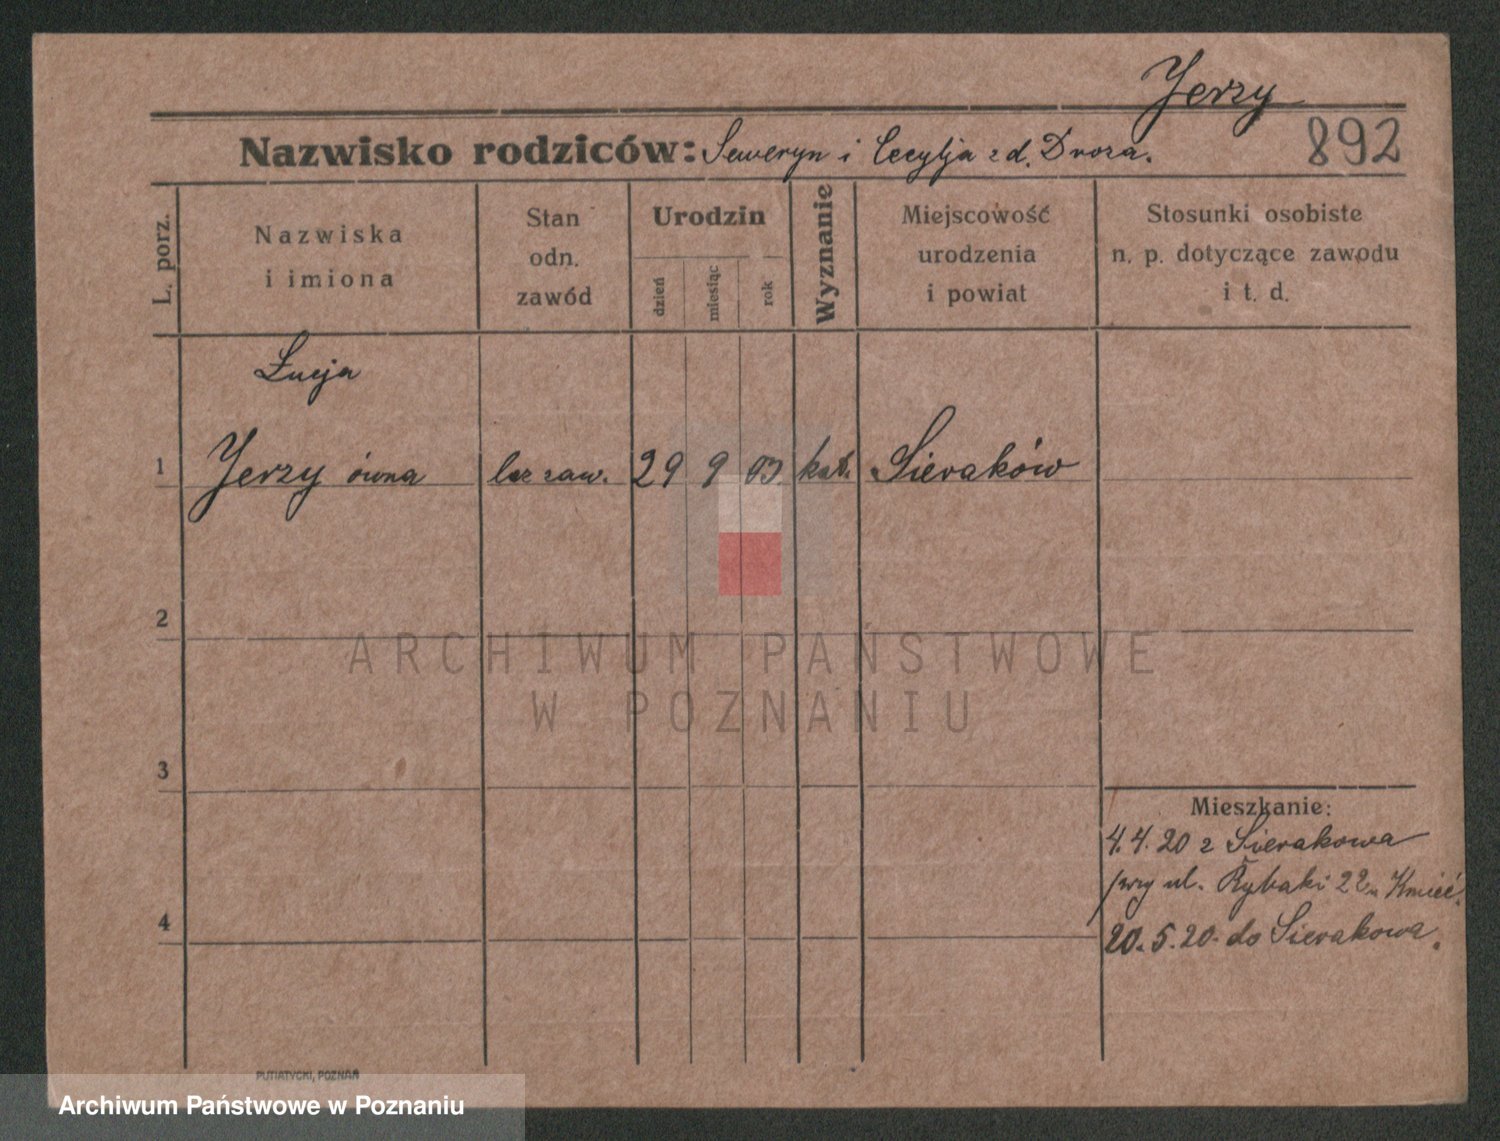 Jerzy
Nazwisko rodziców: Seweryn i Cecylja z d. Droza.
892
L. porz.
Nazwiska
i imiona
Stan
odn.
zawód
Urodzin
dzień
miesiąc
rok
Wyznanie
Miejscowość
urodzenia
i powiat
Stosunki osobiste
n. p. dotyczące zawodu
i t. d.
Łucja
1 Jerzy ówna bez zaw. 29 9 03 kat. Sieraków
2
ARCHIWUM PAŃSTWOWE
W POZNANIU
3
Mieszkanie:
4.4.20 z Sierakowa
przy ul. Rybaki 22 u Kmieć.
4
20.5.20. do Sierakowa.
PUTIATYCKI, POZNAŃ
Archiwum Państwowe w Poznaniu